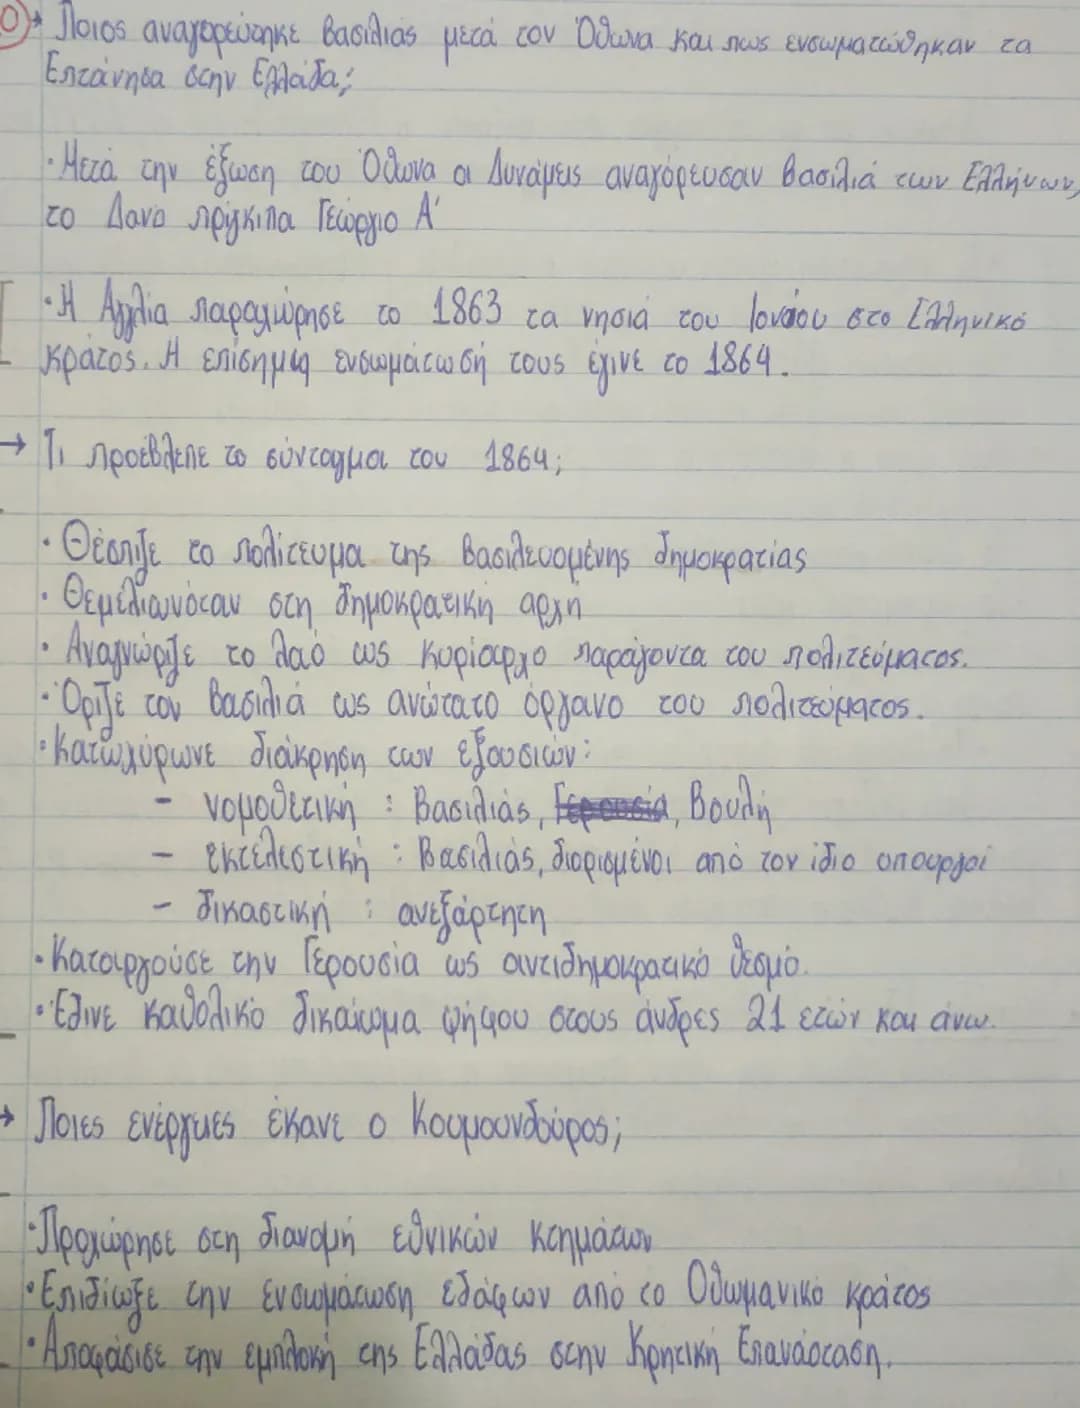 → Ποιος αναγορεύτηκε βασιλιάς μετά τον Όθωνα και πως ενσωματώθηκαν τα
Επτάνησα στην Ελλάδα;
· Μετά την έξωση του Όθωνα οι Δυνάμεις αναγόρευσαν βασιλιά των Ελλήνων,
το Δανό πρίγκιπα Γεώργιο Α'
· Η Αγγλία παραχώρησε το 1863 τα νησιά του Ιονίου στο Ελληνικό
κράτος. Η επίσημη ενσωμάτωσή τους έγινε το 1864.
→ Τι προέβλεπε το σύνταγμα του 1864;
· Θέσπιζε το πολίτευμα της βασιλευομένης δημοκρατίας
· Θεμελιωνόταν στη δημοκρατική αρχή
· Αναγνώριζε το λαό ως κυρίαρχο παράγοντα του πολιτεύματος.
· Όριζε τον βασιλιά ως ανώτατο όργανο του πολιτεύματος.
· Κατωχύρωνε διάκρηση των εξουσιών:
– νομοθετική : Βασιλιάς, Γερουσία, Βουλή
– εκτελεστική : Βασιλιάς, διορισμένοι από τον ίδιο υπουργοί
– δικαστική : ανεξάρτητη
· Καταργούσε την Γερουσία ως αντιδημοκρατικό θεσμό.
· Έδινε καθολικό δικαίωμα ψήφου στους άνδρες 21 ετών και άνω.
→ Ποιες ενέργειες έκανε ο Κουμουνδούρος;
· Προχώρησε στη διανομή εθνικών κτημάτων
· Επιδίωξε την ενσωμάτωση εδάφων από το Οθωμανικό κράτος
· Αποφάσισε την εμπλοκή της Ελλάδας στην Κρητική Επανάσταση.